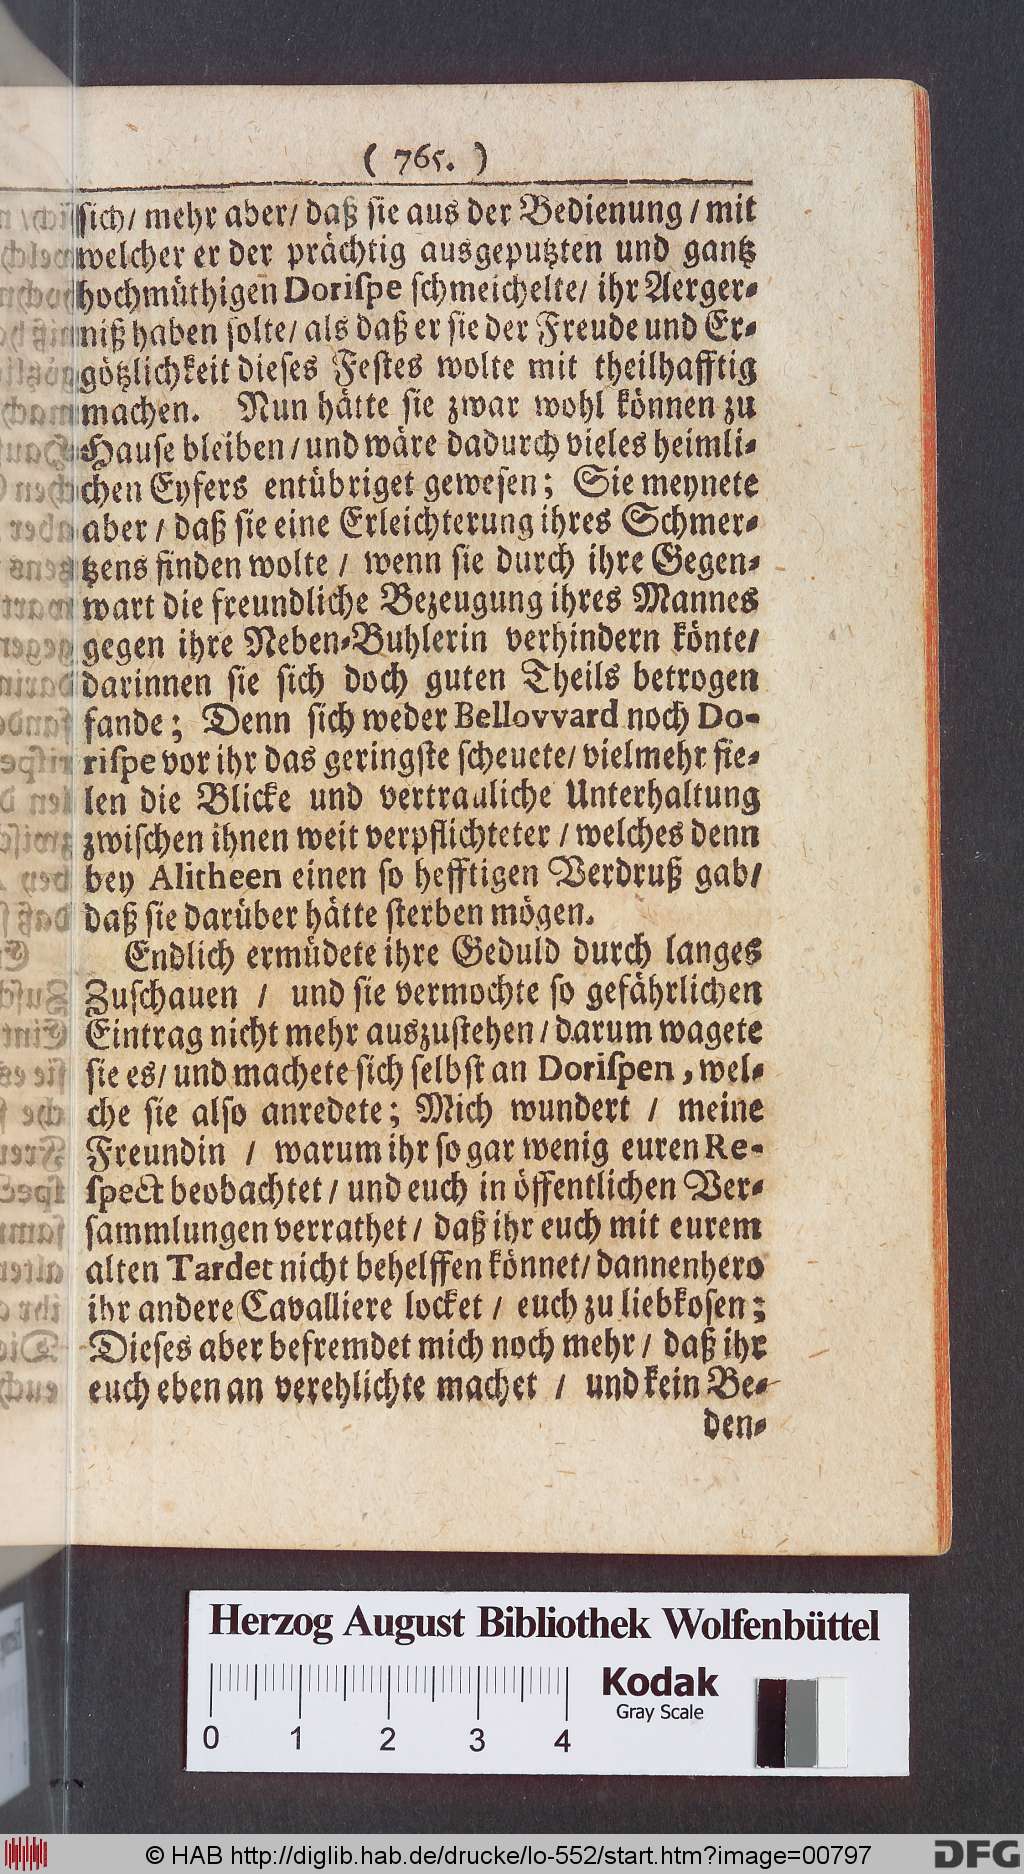 ( 765. )
sich/ mehr aber/ daß sie aus der Bedienung / mit
welcher er der prächtig ausgeputzten und gantz
hochmüthigen Dorispe schmeichelte/ ihr Aerger-
niß haben solte/ als daß er sie der Freude und Er-
götzlichkeit dieses Festes wolte mit theilhafftig
machen. Nun hätte sie zwar wohl können zu
Hause bleiben / und wäre dadurch vieles heimli-
chen Eyfers entübriget gewesen; Sie meynete
aber / daß sie eine Erleichterung ihres Schmer-
tzens finden wolte / wenn sie durch ihre Gegen-
wart die freundliche Bezeugung ihres Mannes
gegen ihre Neben-Buhlerin verhindern könte/
darinnen sie sich doch guten Theils betrogen
fande; Denn sich weder Bellovvard noch Do-
rispe vor ihr das geringste scheuete/ vielmehr fie-
len die Blicke und vertrauliche Unterhaltung
zwischen ihnen weit verpflichteter / welches denn
bey Alitheen einen so hefftigen Verdruß gab/
daß sie darüber hätte sterben mögen.
Endlich ermüdete ihre Geduld durch langes
Zuschauen / und sie vermochte so gefährlichen
Eintrag nicht mehr auszustehen / darum wagete
sie es/ und machete sich selbst an Dorispen, wel-
che sie also anredete; Mich wundert / meine
Freundin / warum ihr so gar wenig euren Re-
spect beobachtet / und euch in öffentlichen Ver-
sammlungen verrathet / daß ihr euch mit eurem
alten Tardet nicht behelffen könnet/ dannenhero
ihr andere Cavalliere locket / euch zu liebkosen;
Dieses aber befremdet mich noch mehr / daß ihr
euch eben an verehlichte machet / und kein Be-
den-
Herzog August Bibliothek Wolfenbüttel
Kodak
Gray Scale
0 1 2 3 4
© HAB http://diglib.hab.de/drucke/lo-552/start.htm?image=00797
DFG